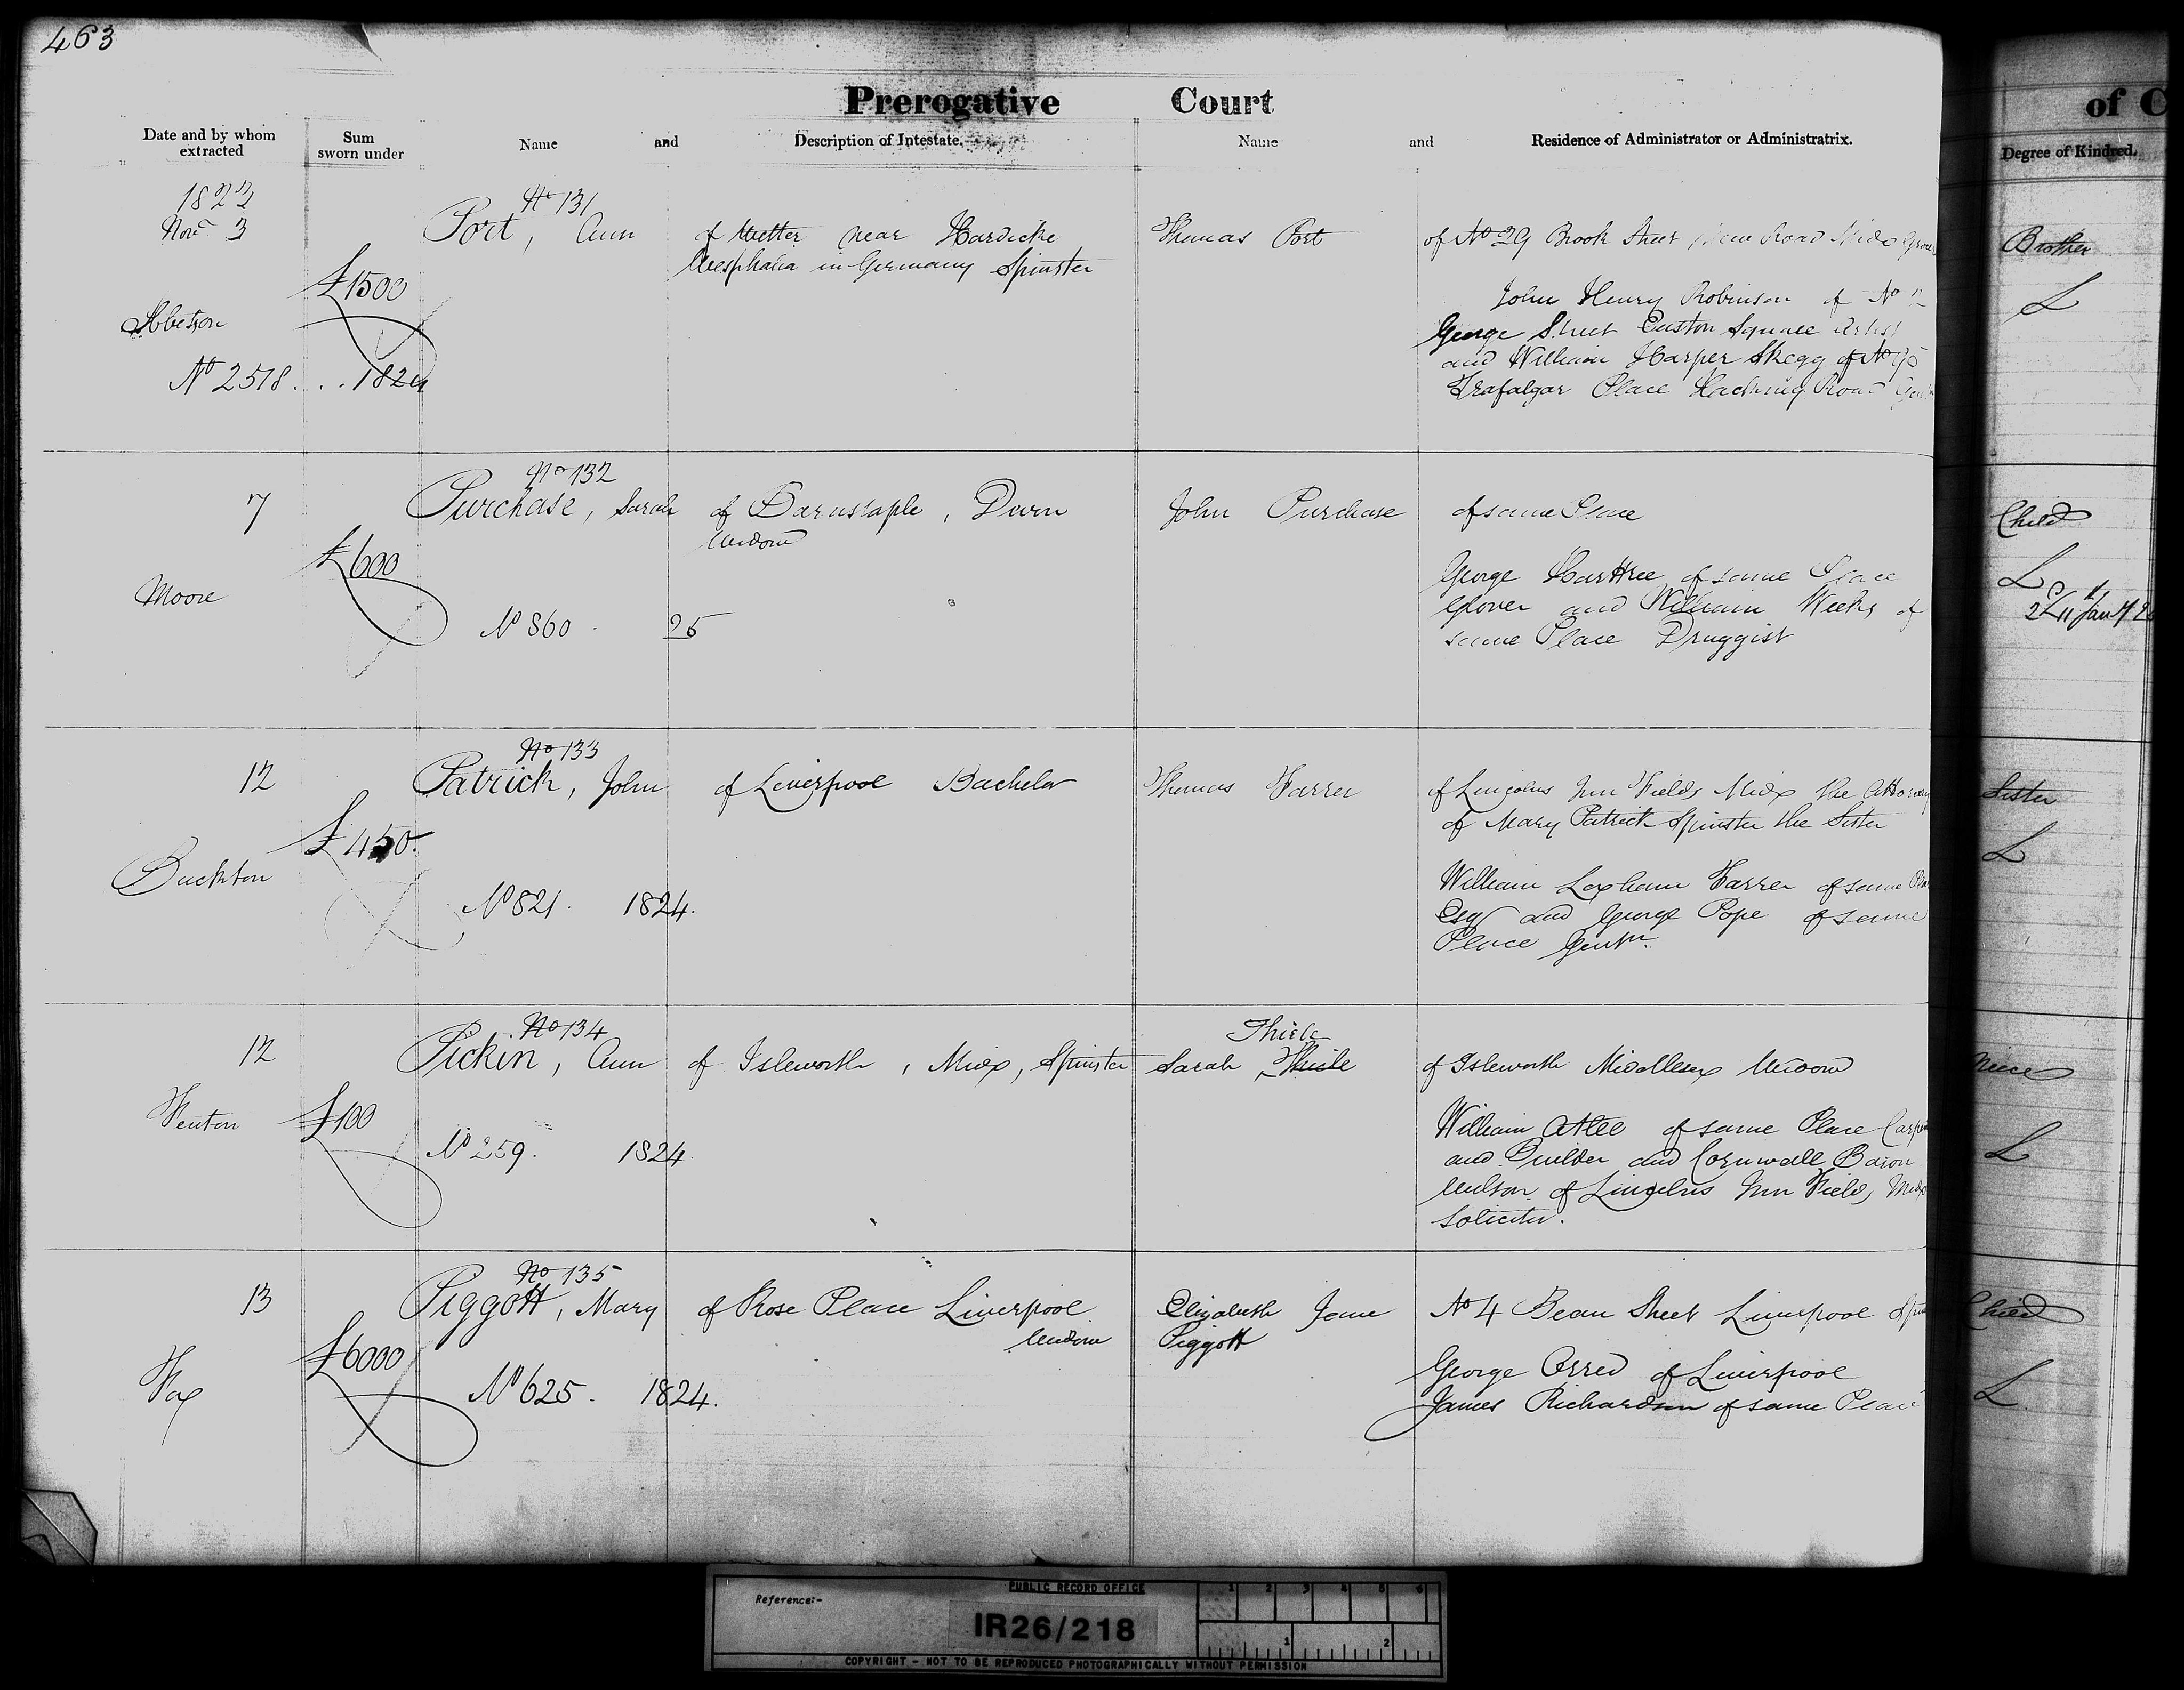 463
Prerogative Court
of C
Date and by whom extracted
Sum sworn under
Name and Description of Intestate.
Name and Residence of Administrator or Administratrix.
Degree of Kindred.
1823
Novr 3
No 131
Port, Ann
of near
Westphalia in Germany Spinster
Thomas Port
of No 29 Brook Street New Road Midx
Brother
£1500
John Henry Robinson of No
George Street Euston Square Artist
and William Harper Skegg of No 95
Trafalgar Place Hackney Road
L
No 2518 . . . 1824
7
No 132
Purchase, Sarah
of Barnstaple, Devon
Widow
John Purchase
of same Place
Child
£600
Moore
George Harttree of same Place
Glover and William Weeks of
same Place Druggist
L
No 860 . 25
12
No 133
Patrick, John
of Liverpool Bachelor
Thomas Farrer
of Lincolns Inn Fields Midx the Attorney
of Mary Patrick Spinster the Sister
Sister
£450.
Buckton
William Loxham Farrer of same
Esqr and George Pope of same
Place Gentn.
L
No 821. 1824.
12
No 134
Pickin, Ann
of Isleworth, Midx, Spinster
Thiele
Sarah
of Isleworth Middlesex Widow
Niece
Fenton
£100
William Atlee of same Place
and Builder and Cornwall Baron
Wilson of Lincolns Inn Fields Midx
Solicitor.
L
No 259. 1824.
13
No 135
Piggott, Mary
of Rose Place Liverpool
Widow
Elizabeth Jane
Piggott
No 4 Bean Street Liverpool
Child
£6000
Fox
George Orred of Liverpool
James Richardson of same Place
L
No 625. 1824.
PUBLIC RECORD OFFICE
1 2 3 4 5 6
Reference:-
IR26/218
1 2
COPYRIGHT - NOT TO BE REPRODUCED PHOTOGRAPHICALLY WITHOUT PERMISSION